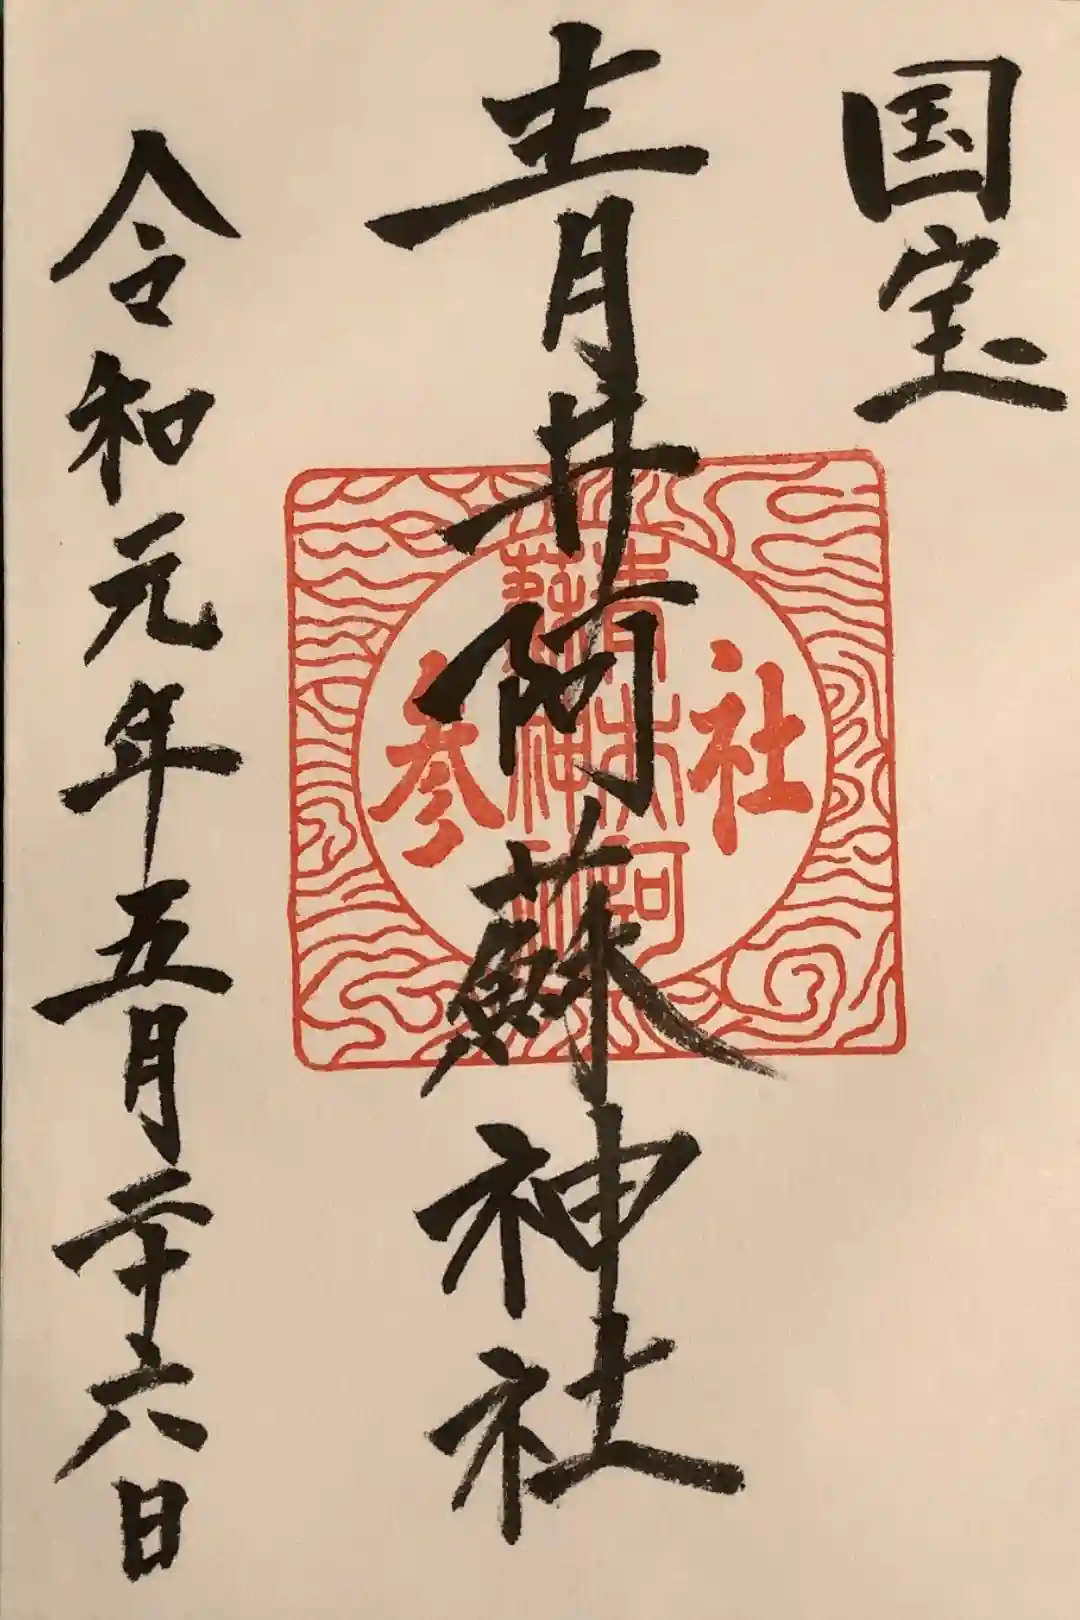 国宝
青井阿蘇神社
社参
青井大阿
蘇神社
令和元年五月二十六日